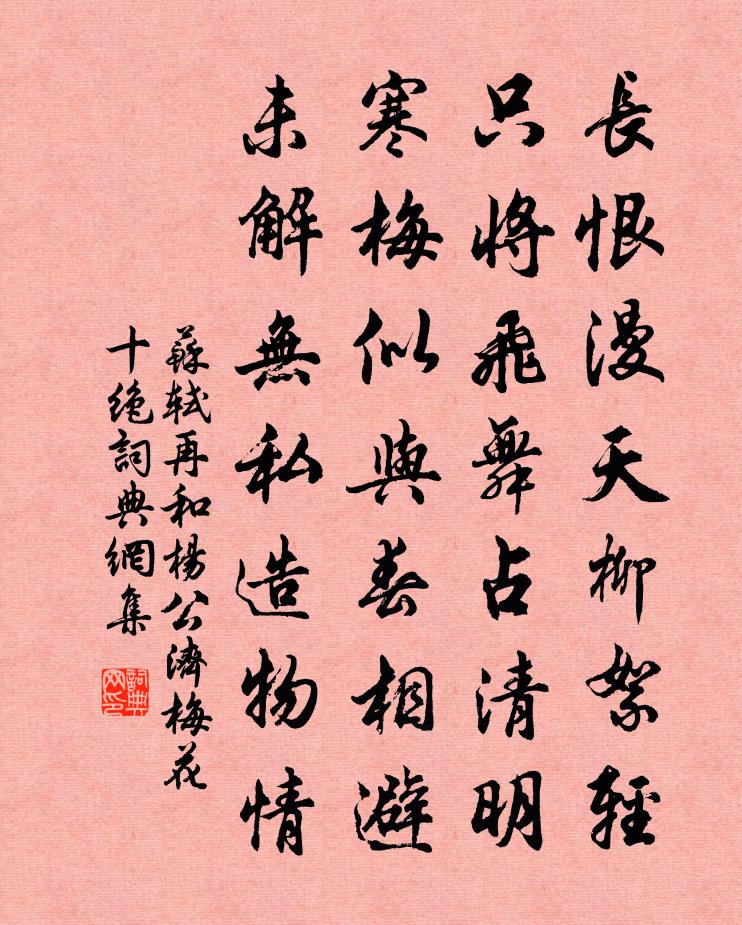 長恨漫天柳絮輕
只將飛舞占清明
寒梅似與春相避
未解無私造物情
蘇軾再和楊公濟梅花
十絕詞典網集
詞典网印